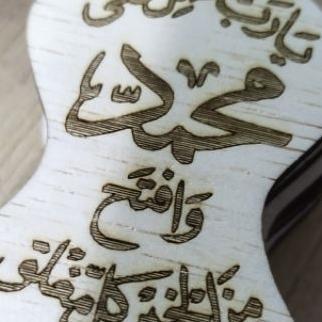 يا رب صل على
محمد
وافتح
من الخير كل مغلق